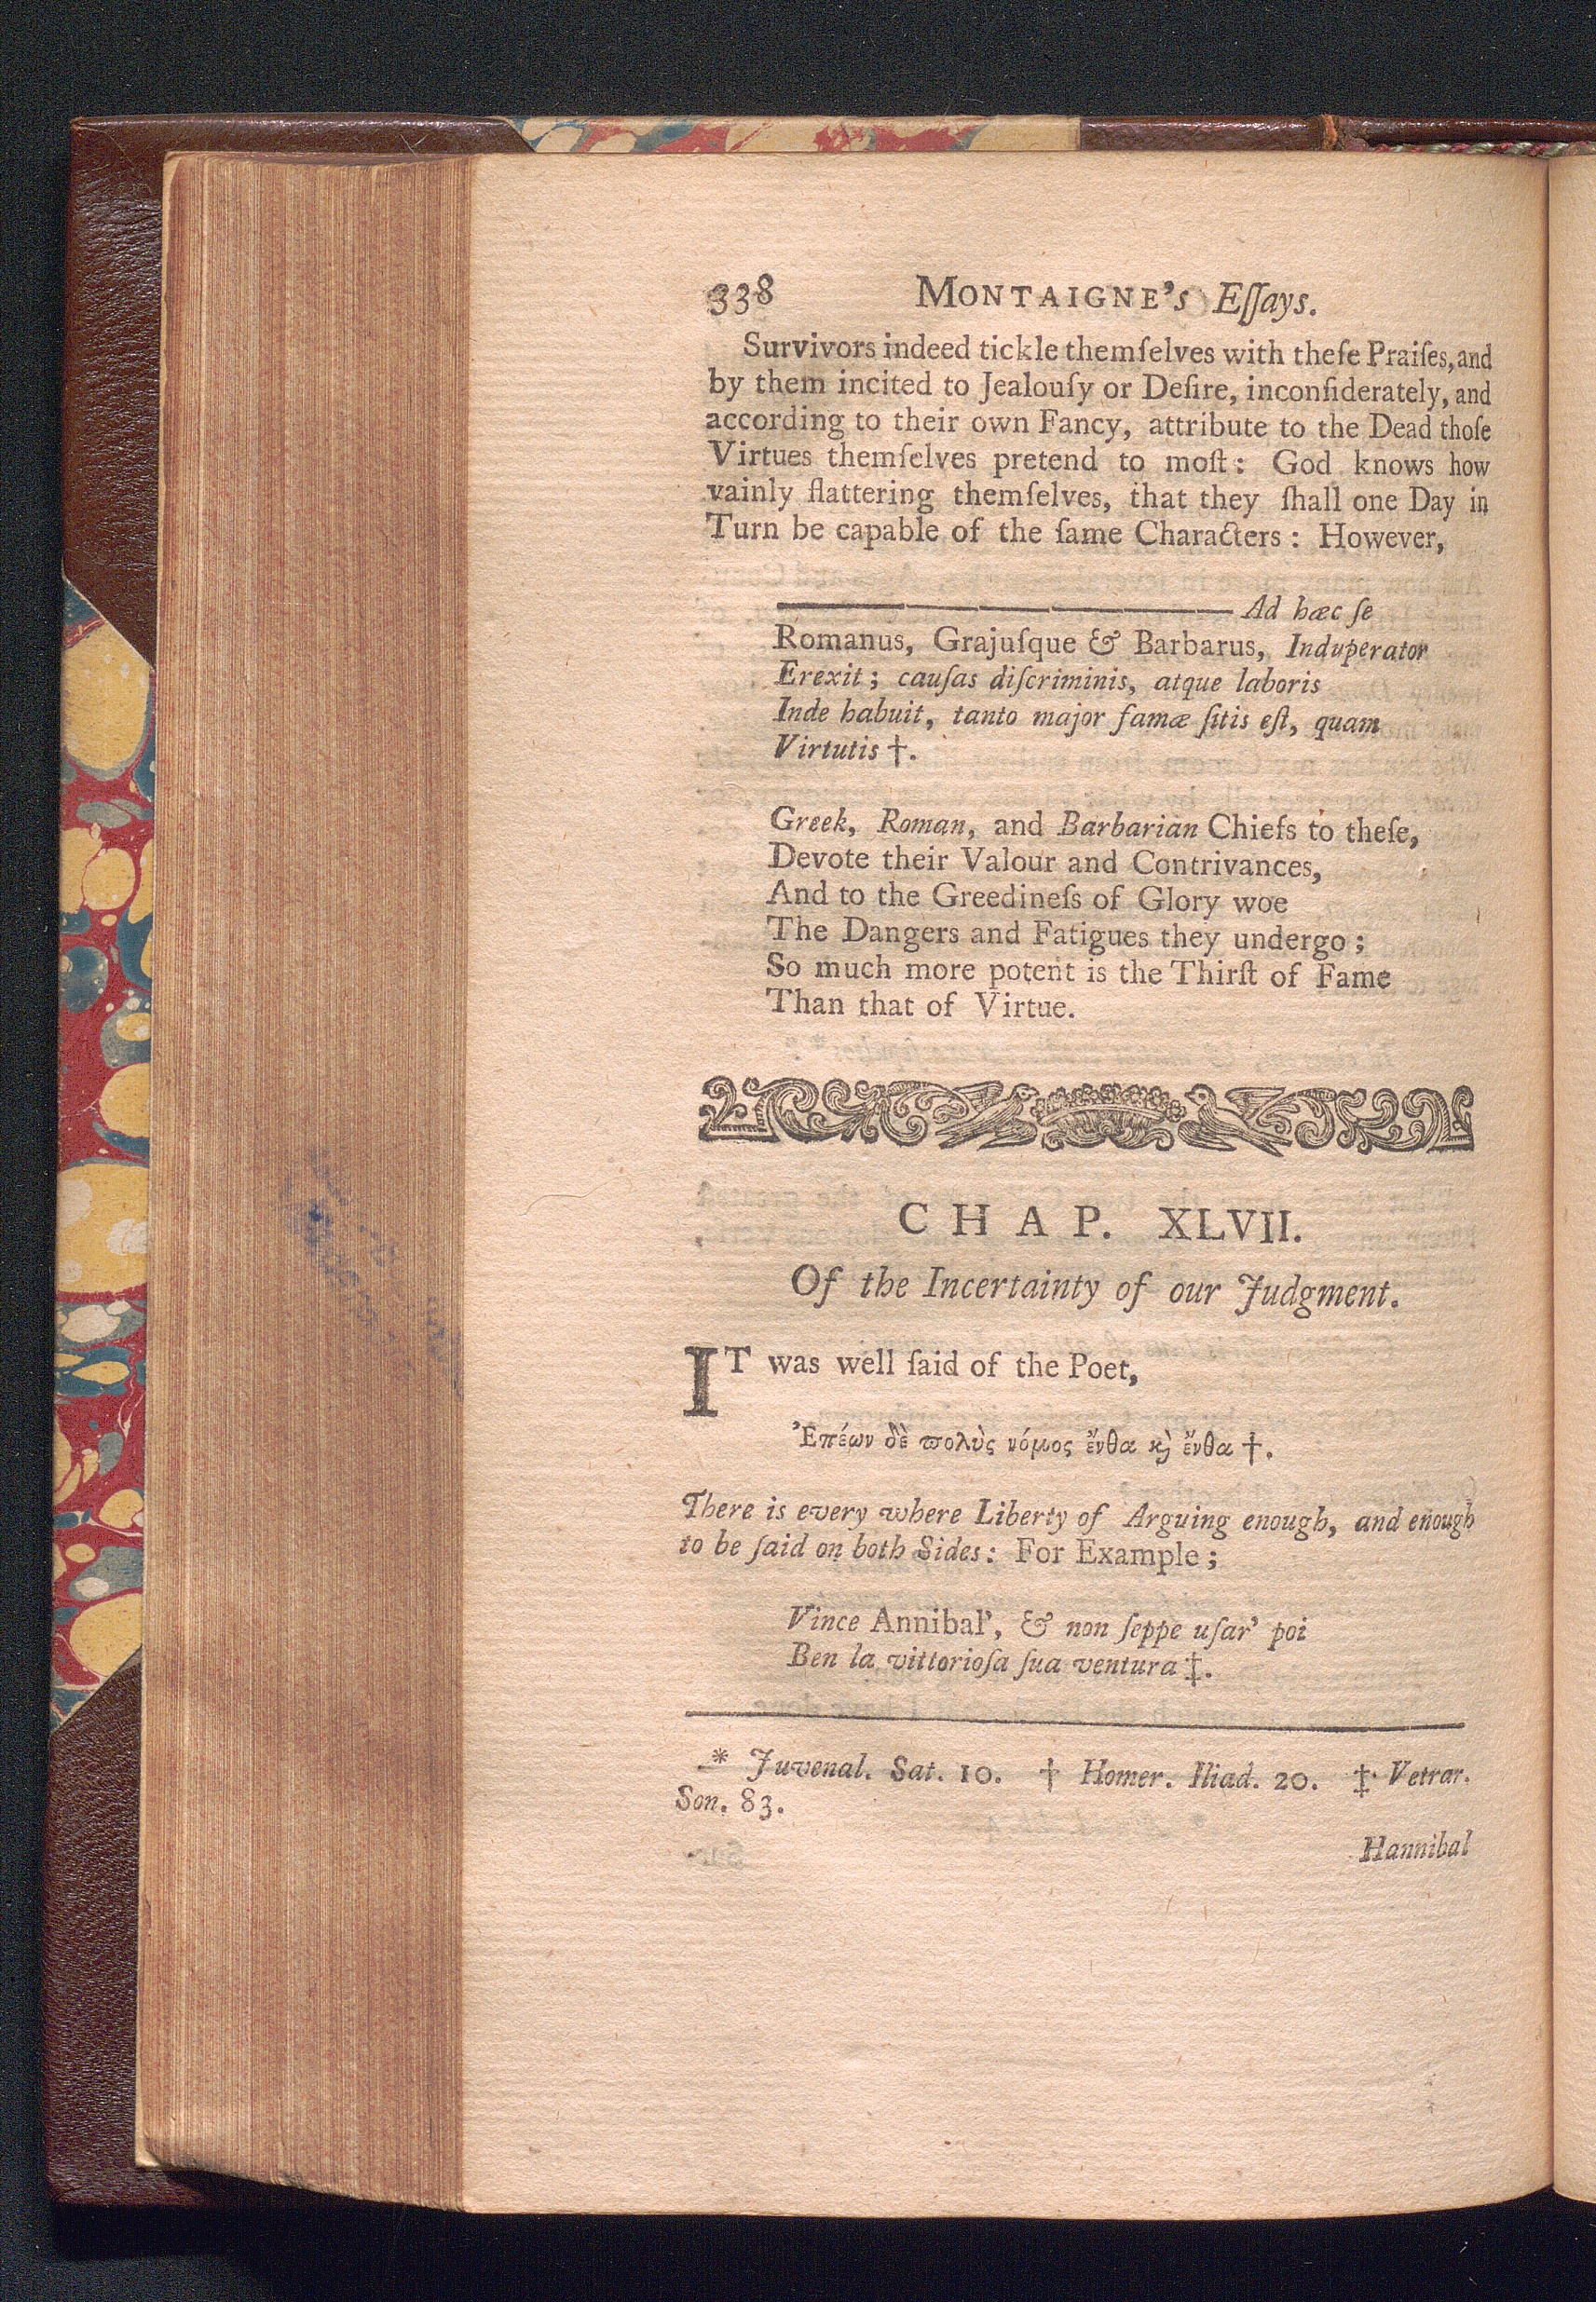 338 MONTAIGNE's Eſſays.
Survivors indeed tickle themſelves with theſe Praiſes, and
by them incited to Jealouſy or Deſire, inconſiderately, and
according to their own Fancy, attribute to the Dead thoſe
Virtues themſelves pretend to moſt: God knows how
vainly flattering themſelves, that they ſhall one Day in
Turn be capable of the ſame Characters: However,
Ad hæc ſe
Romanus, Grajuſque & Barbarus, Induperator
Erexit; cauſas diſcriminis, atque laboris
Inde habuit, tanto major famæ ſitis eſt, quam
Virtutis †.
Greek, Roman, and Barbarian Chiefs to theſe,
Devote their Valour and Contrivances,
And to the Greedineſs of Glory woe
The Dangers and Fatigues they undergo;
So much more potent is the Thirſt of Fame
Than that of Virtue.
CHAP. XLVII.
Of the Incertainty of our Judgment.
IT was well ſaid of the Poet,
Ἐπέων δὲ πολὺς νόμος ἔνθα ϗ̀ ἔνθα †.
There is every where Liberty of Arguing enough, and enough
to be ſaid on both Sides: For Example;
Vince Annibal', & non ſeppe uſar' poi
Ben la vittorioſa ſua ventura ‡.
* Juvenal. Sat. 10. † Homer. Iliad. 20. ‡ Vetrar.
Son. 83.
Hannibal